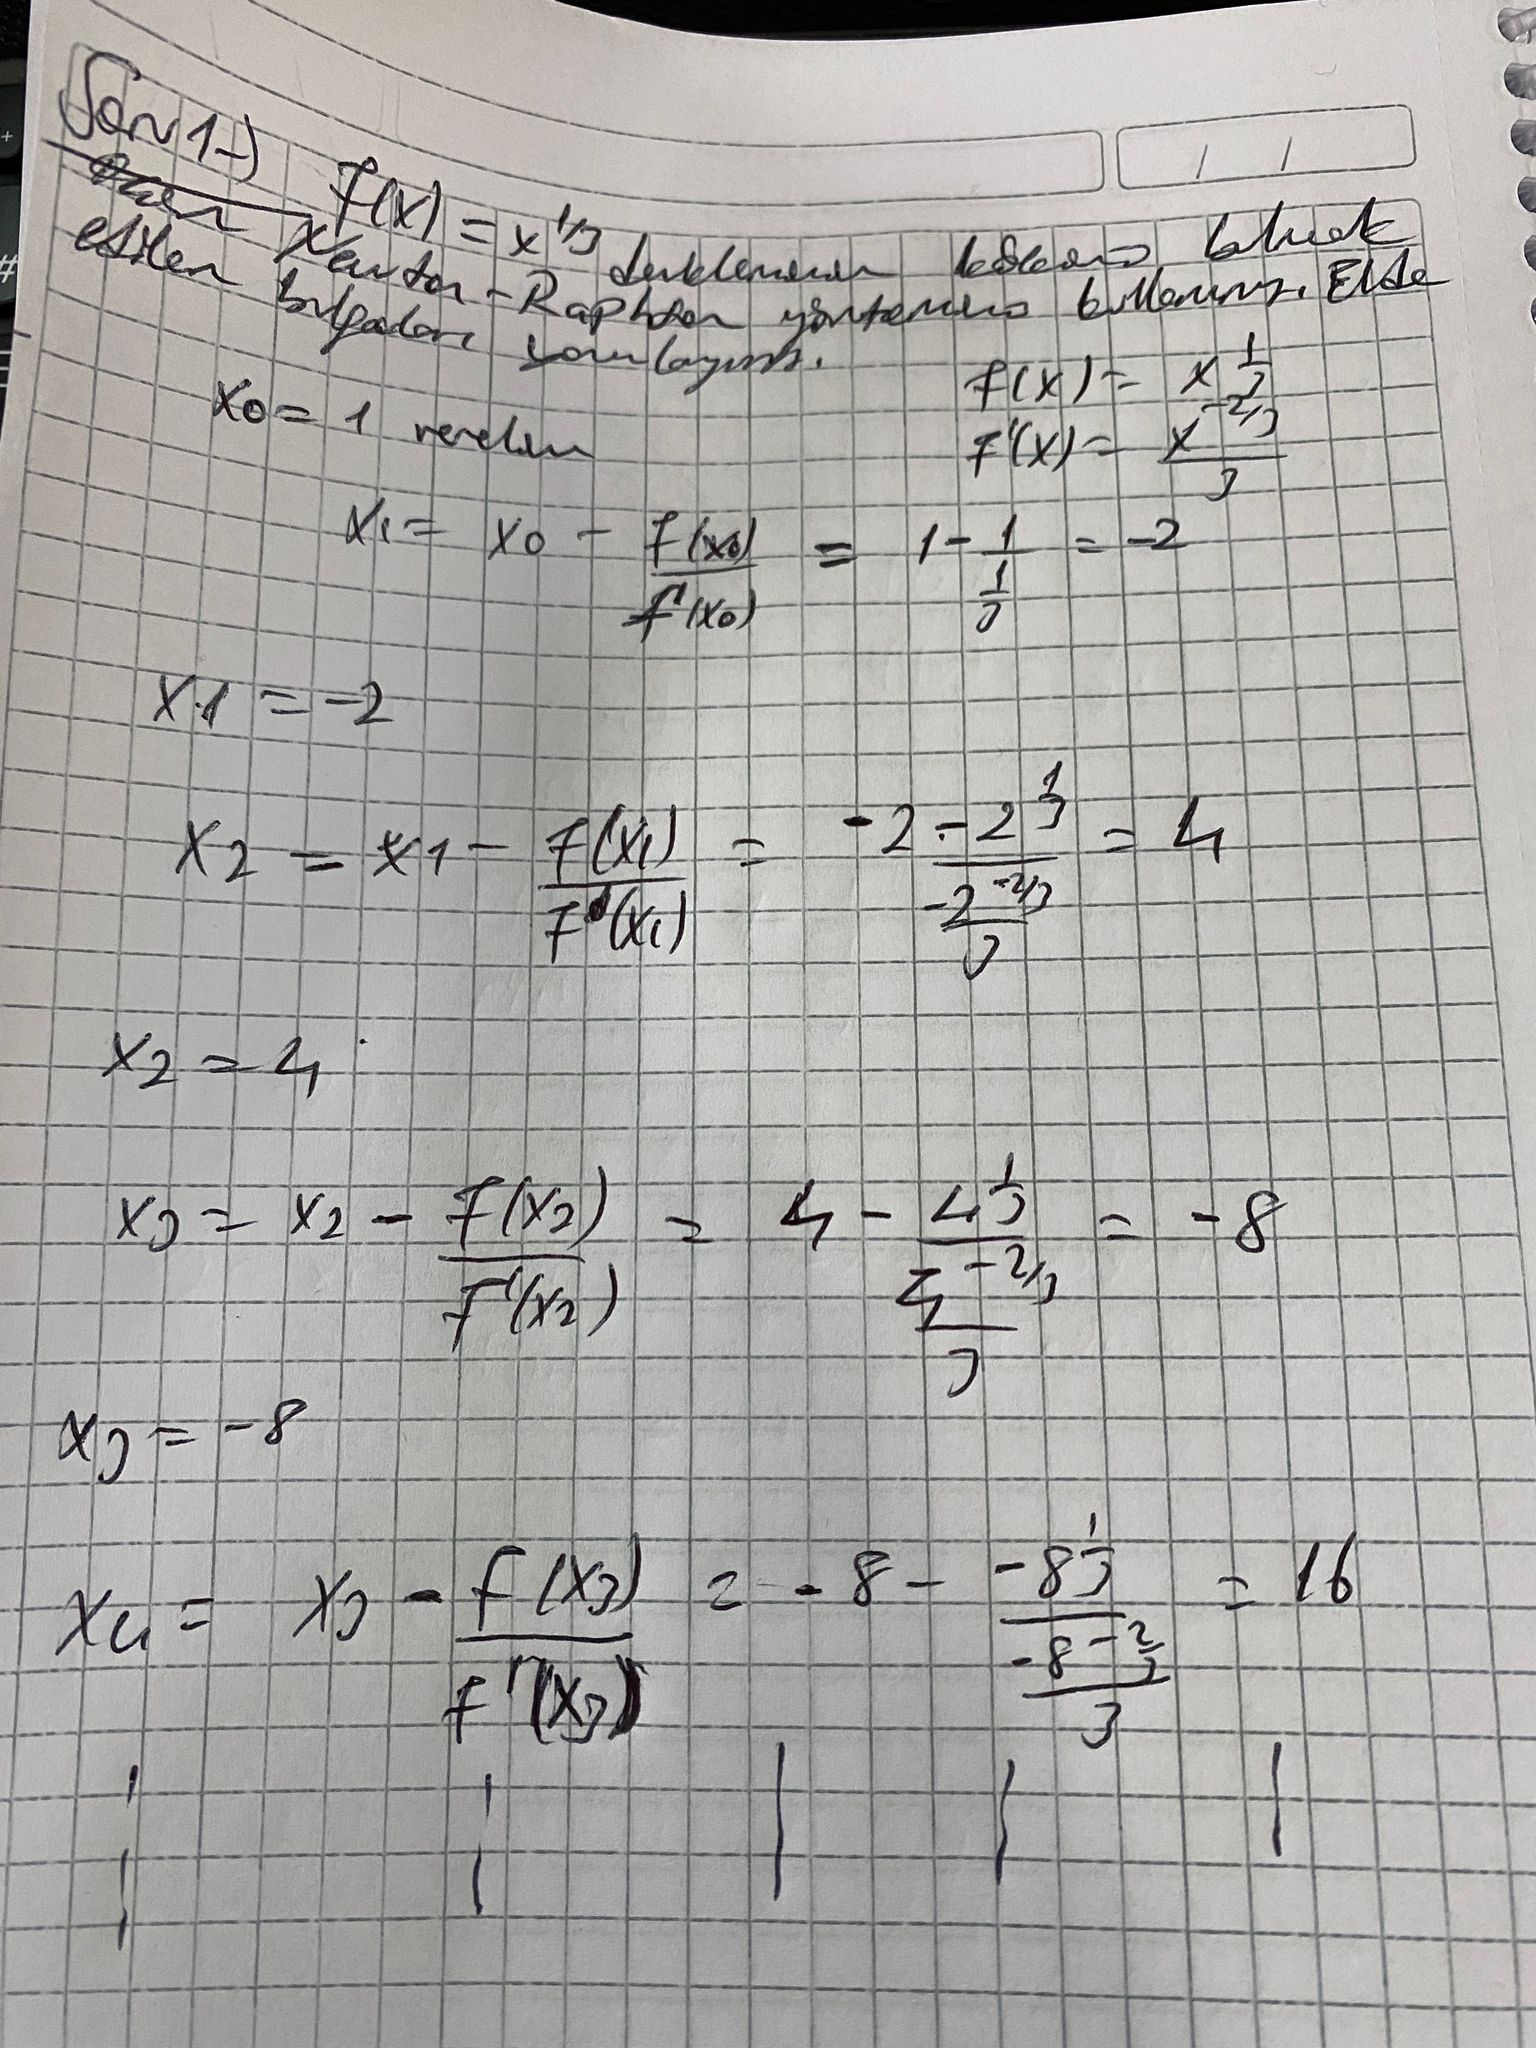 Soru 1-)
F(x) = x^1/3 denkleminin kökünü bulmak
Newton-Raphson yöntemini kullanınız. Elde
edilen bulguları yorumlayınız.
x0 = 1 verelim
f(x) = x^1/3
f'(x) = x^-2/3 / 3
x1 = x0 - f(x0)/f'(x0) = 1 - 1/(1/3) = -2
x1 = -2
x2 = x1 - f(x1)/f'(x1) = -2 - 2^1/3 / (-2^-2/3 / 3) = 4
x2 = 4
x3 = x2 - f(x2)/f'(x2) = 4 - 4^1/3 / (4^-2/3 / 3) = -8
x3 = -8
x4 = x3 - f(x3)/f'(x3) = -8 - -8^1/3 / (-8^-2/3 / 3) = 16